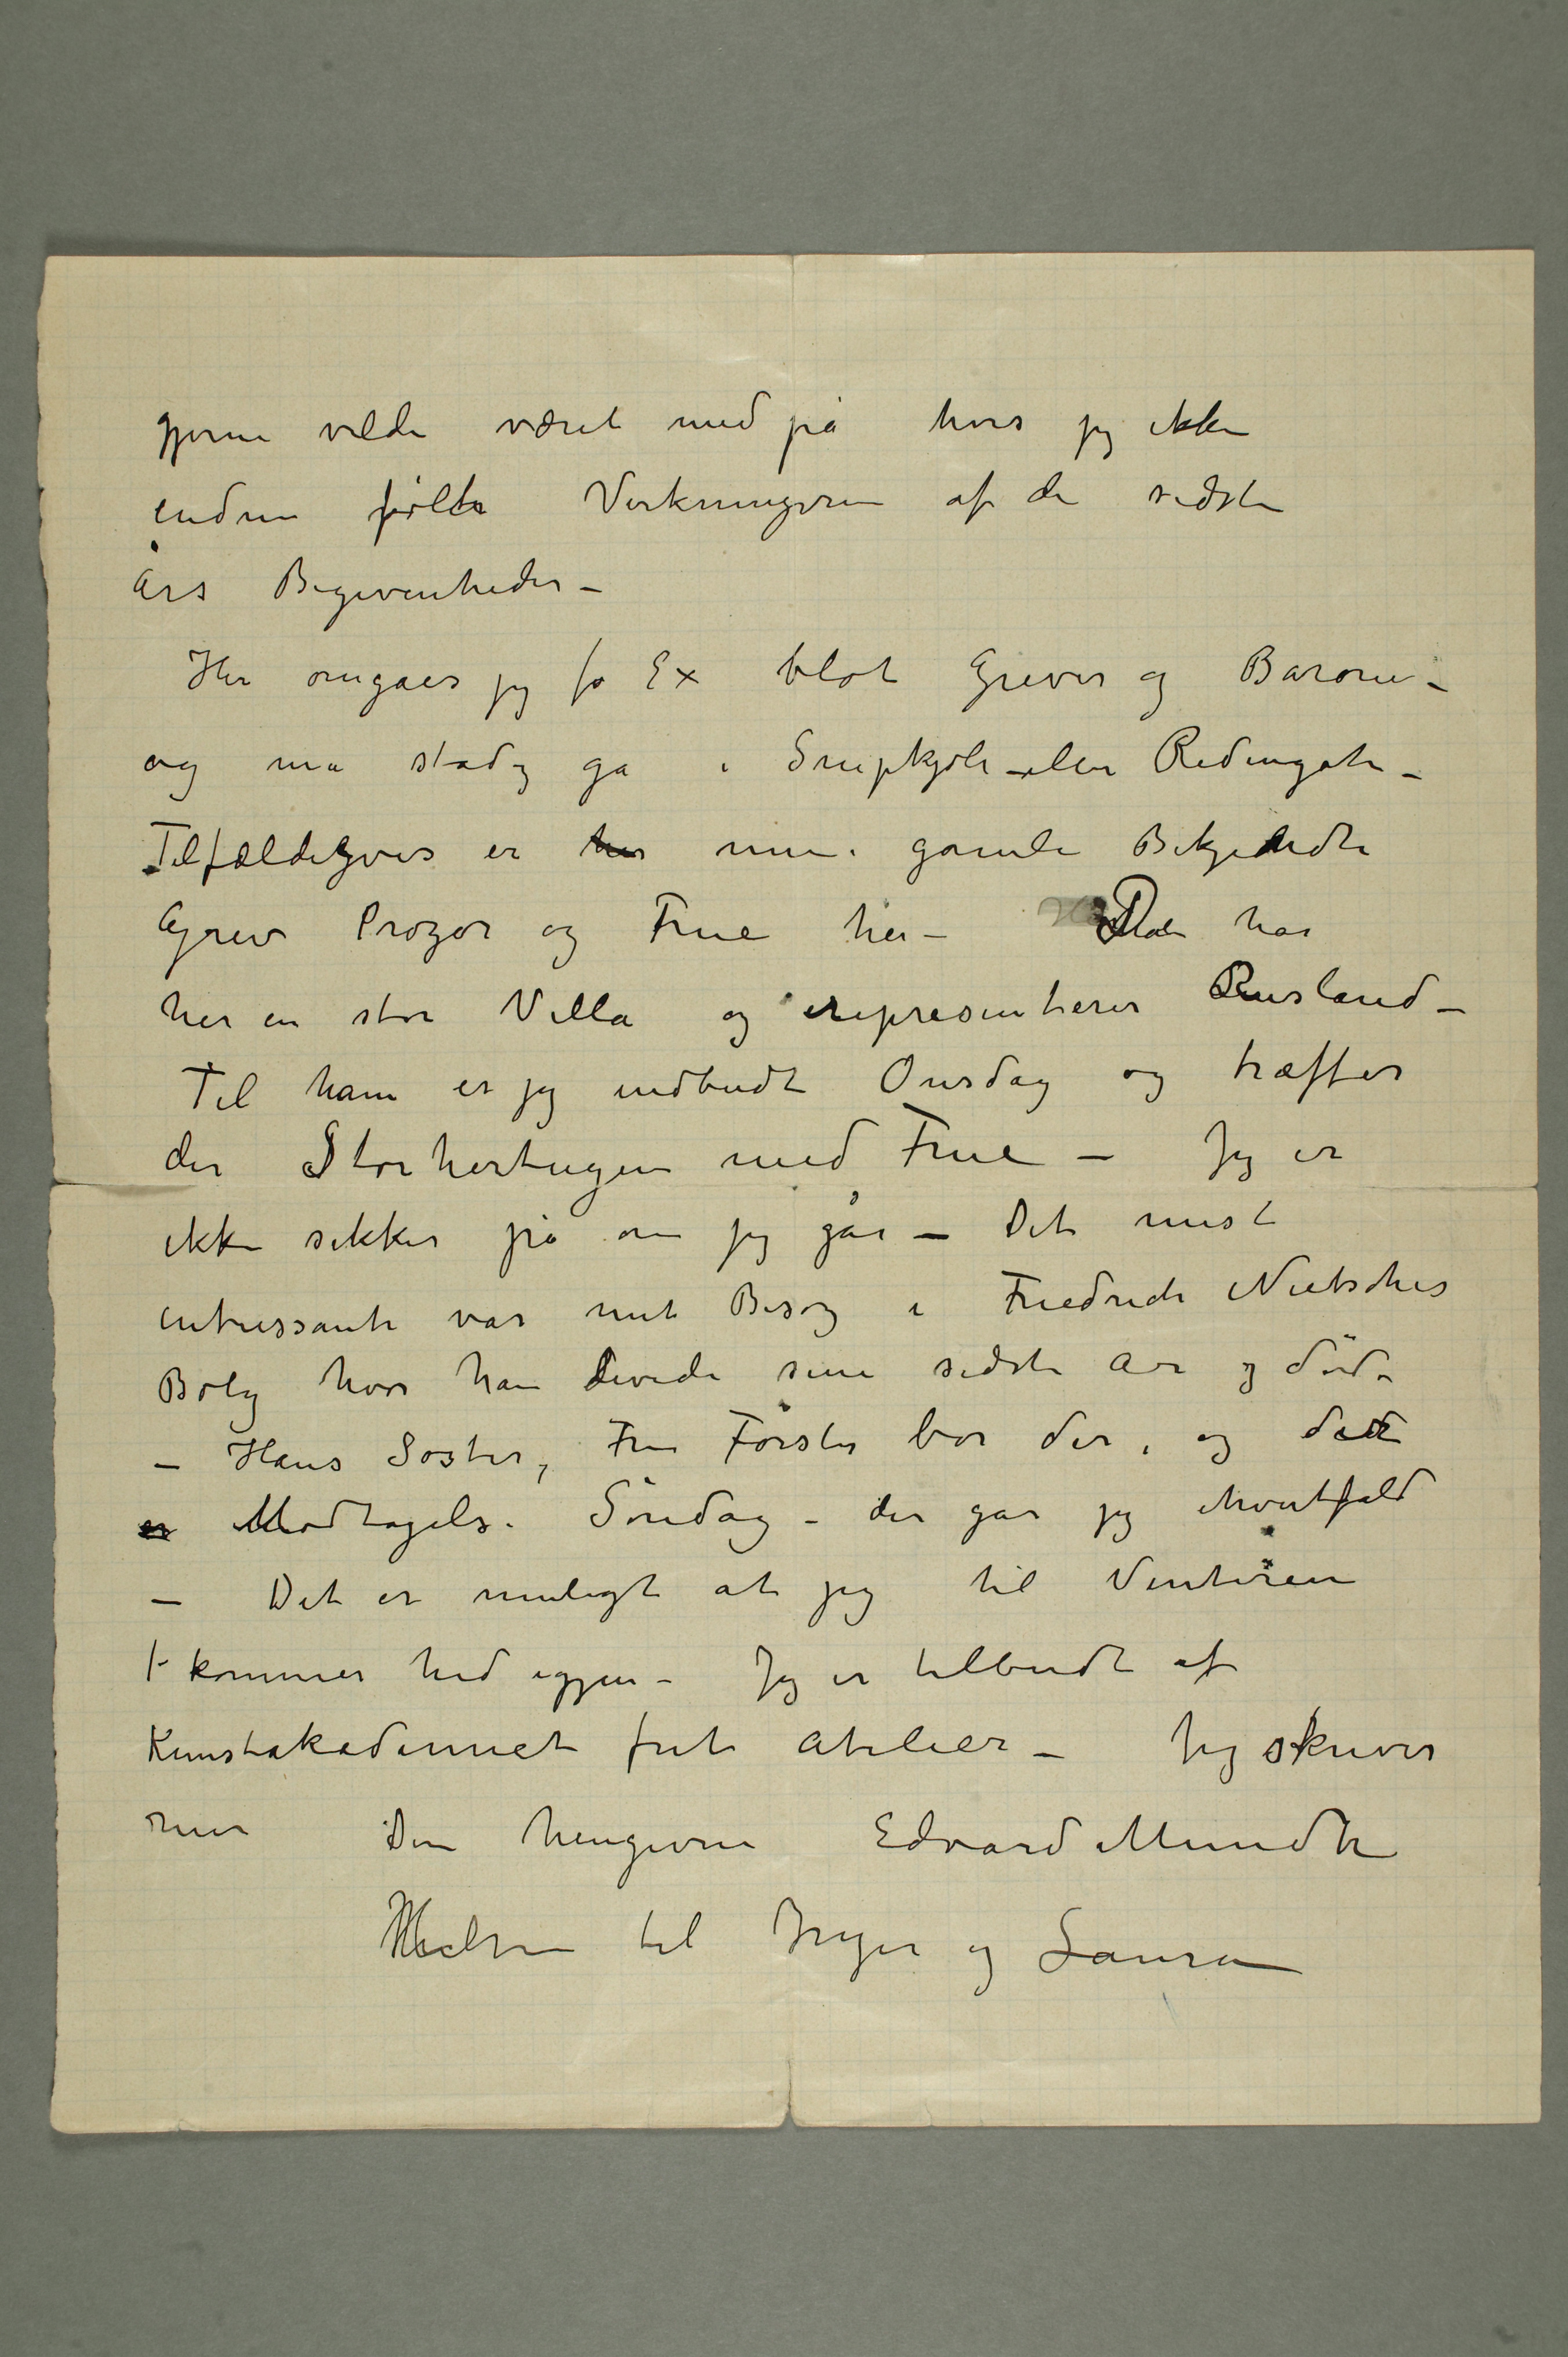 gjerne vilde været med på hvis jeg ikke
endnu følte Virkningerne af de sidste
års Begivenheder –
Her omgåes jeg f Ex blot Grever og Baroner –
og må stadig gå i Snipkjole eller Redingote –
Tilfældigvis er mine gamle Bekjendte
Grev Prozor og Frue her – De har
her en stor Villa og representerer Rusland –
Til ham er jeg indbudt Onsdag og træffer
der Storhertugen med Frue – Jeg er
ikke sikker på om jeg går – Det mest
intressante var mit Besøg i Friedrich Nietsches
Bolig hvor han levede sine sidste år og døde
– Hans Søster, Fru Förster bor der, og det
er Modtagelse Søndag – der går jeg ihvertfald
– Det er muligt at jeg til Vinteren
kommer hid igjen – Jeg er tilbudt af
Kunstakademiet frit Atelier – Jeg skriver
mer Din hengivne Edvard Munch
Hilsen til Inger og Laura